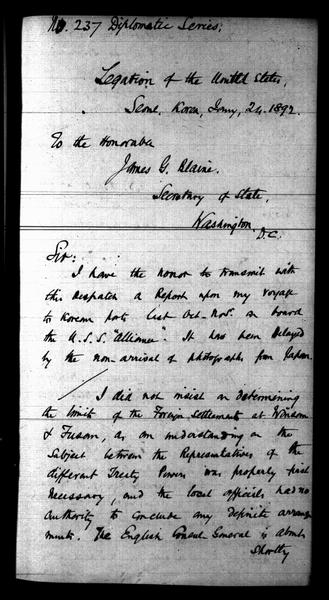 No. 237 Diplomatic Series.
Legation of the United States,
Seoul, Korea, Jany. 24. 1892.
To the Honorable
James G. Blaine.
Secretary of State,
Washington
D.C.
Sir:
I have the honor to transmit with
this despatch a Report upon my voyage
to Korean ports last Oct-Nov. on board
the U.S.S. "Alliance". It has been delayed
by the non-arrival of photographs from Japan.
I did not insist on determining
the limits of the Foreign Settlements at Wönsan
& Fusan, as an understanding on the
Subject between the Representatives of the
different Treaty Powers was properly first
necessary, and the local officials had no
authority to conclude any definite arrange
ments. The English Consul General is about
shortly